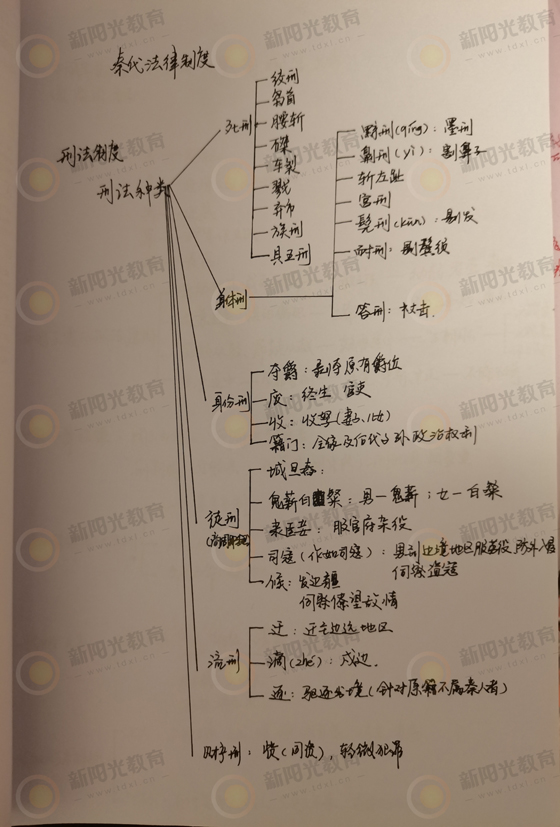 秦代法律制度
刑法制度
刑法种类
死刑
绞刑
枭首
腰斩
磔
车裂
戮
弃市
族刑
具五刑
身体刑
黥刑(qíng):墨刑
劓刑(yì):割鼻子
斩左趾
宫刑
髡刑(kūn):剃发
耐刑:剃鬓须
笞刑:杖击.
身份刑
夺爵:剥夺原有爵位
废:终生 官吏
收:收孥(妻、儿女)
籍门:全家及后代子孙政治权利
徒刑
城旦舂:
鬼薪白粲:男—鬼薪;女—白粲
隶臣妾:服官府杂役
司寇(作如司寇):男到边境地区服劳役 防外入侵
伺察盗寇
候:发边疆
伺察侯望敌情
流刑
迁:迁去边远地区
谪(zhé):戍边.
逐:驱逐出境(针对原籍不属秦人者)
财产刑:赀(同资),轻微犯罪
新阳光教育
www.tdxl.cn